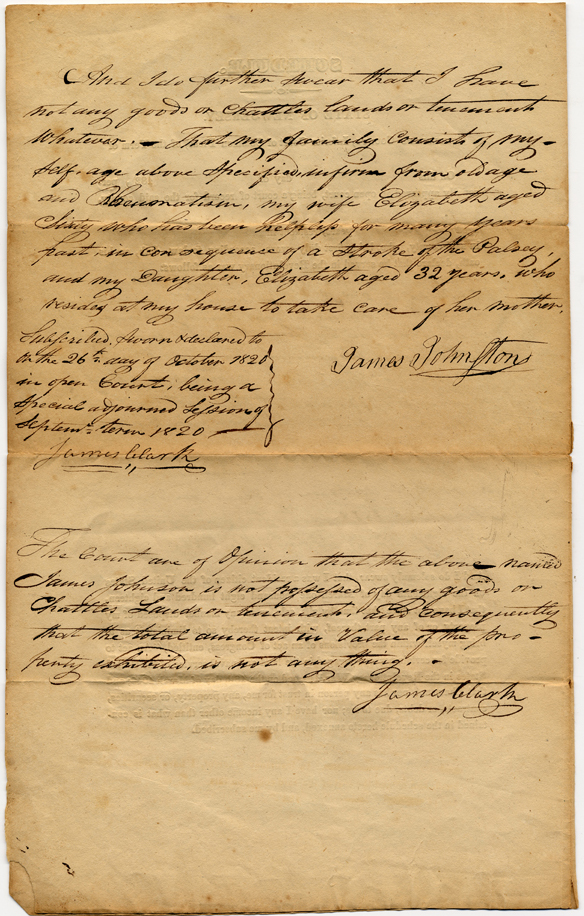 And I do further swear that I have
not any goods or Chattles lands or tenement
Whatever. — That my family Consists of my-
self, age above Specified, infirm from old age
and Rheumatism, my wife Elizabeth aged
Sixty who has been helpless for many years
past, in consequence of a Stroke of the Palsey,
and my Daughter, Elizabeth aged 32 years. who
resides at my house to take care of her mother.
Subscribed, Sworn & declared to
On the 26th day of October 1820
in open Court, being a
Special adjourned Session of
Septemr term 1820
James Johnston
James Clark
The Court are of Opinion that the above named
James Johnson is not possessed of any goods or
Chattles Lands or tenement, and consequently
that the total amount in Value of the pro-
perty exhibited, is not any thing. -
James Clark